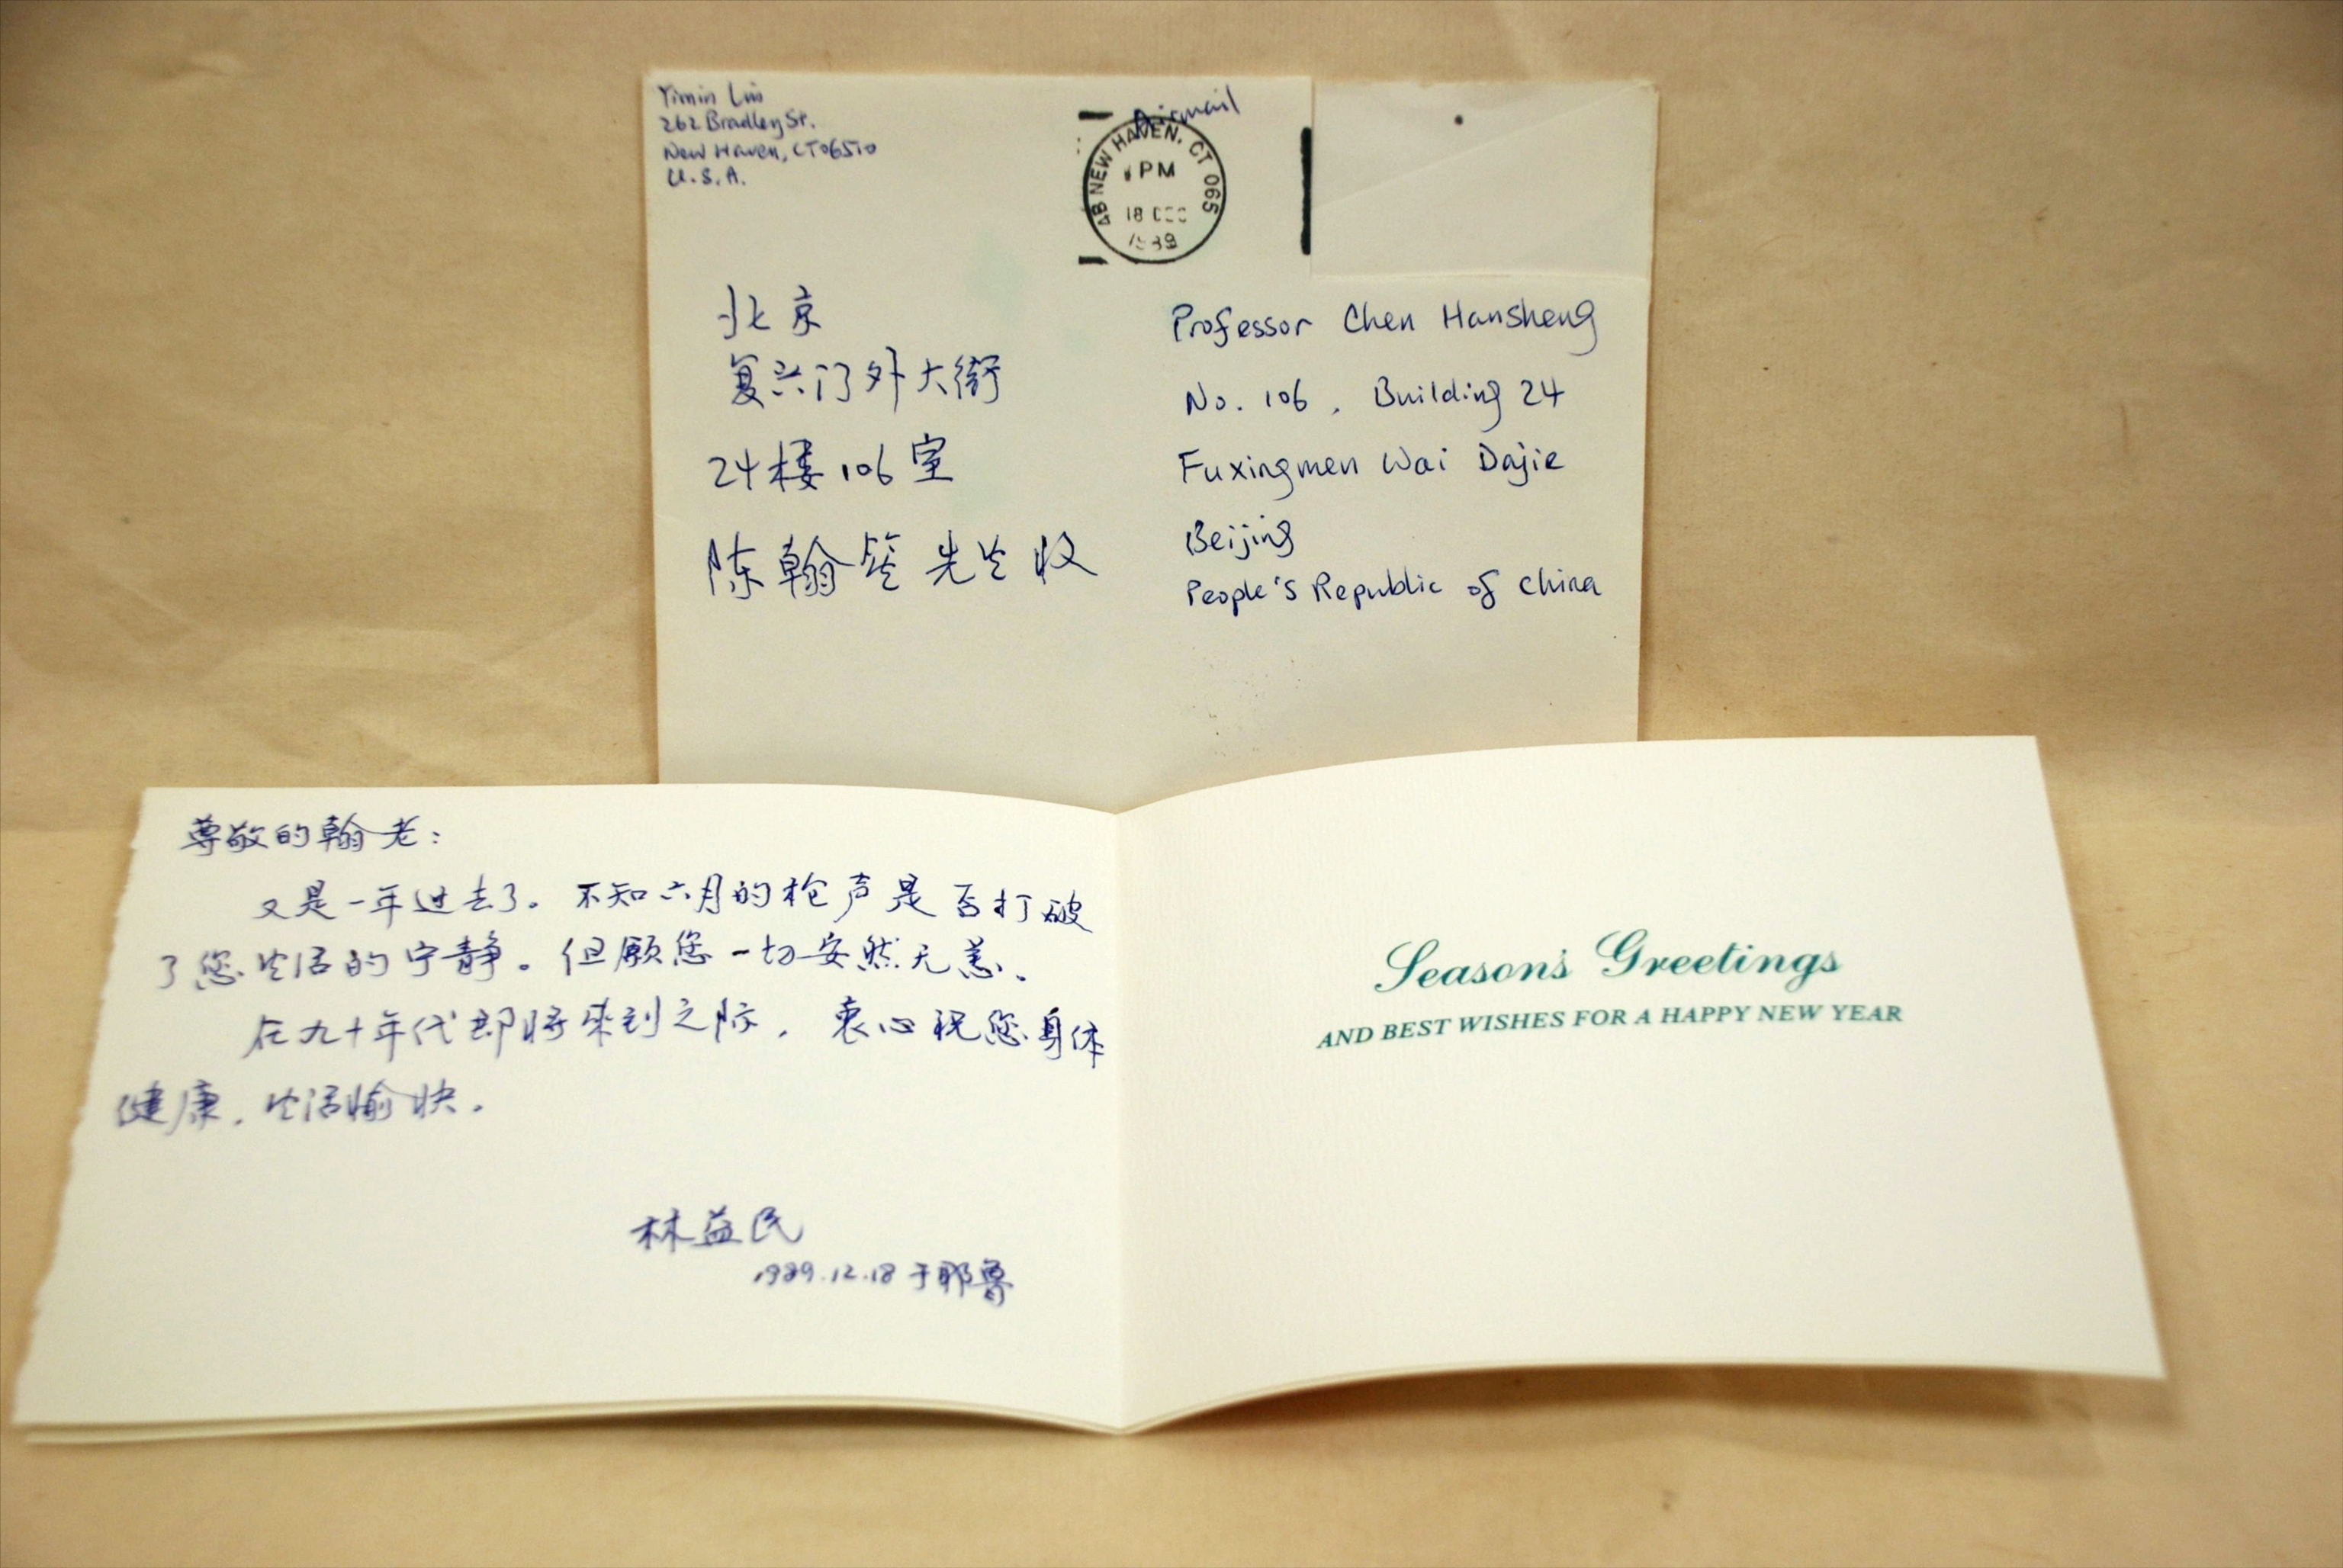 Yimin Lin
262 Bradley St.
New Haven, CT 06510
U.S.A.
Airmail
NEW HAVEN, CT 065
PM
18 DEC
1989
北京
复兴门外大街
24楼106室
陈翰笙先生收
Professor Chen Hansheng
No. 106, Building 24
Fuxingmen Wai Dajie
Beijing
People's Republic of China
尊敬的翰老:
又是一年过去了。不知六月的枪声是否打破
了您生活的宁静。但愿您一切安然无恙。
在九十年代即将来到之际,衷心祝您身体
健康,生活愉快。
林益民
1989.12.18于耶鲁
Season's Greetings
AND BEST WISHES FOR A HAPPY NEW YEAR